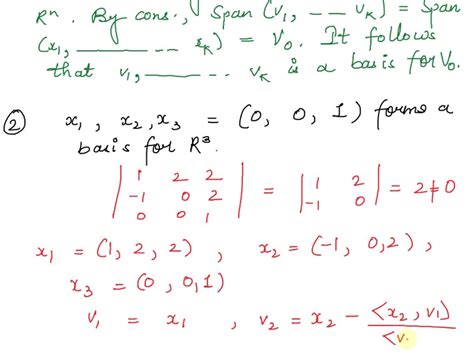 Rⁿ. By cons., Span (v₁, -- vₖ) = Span
(x₁, ---- xₖ) = V₀. It follows
that v₁, ---- vₖ is a basis for V₀.
② x₁, x₂, x₃ = (0, 0, 1) forms a
basis for R³.
| 1 2 2 |
| -1 0 2 | = | 1 2 | = 2 ≠ 0
| 0 0 1 | | -1 0 |
x₁ = (1, 2, 2), x₂ = (-1, 0, 2),
x₃ = (0, 0, 1)
v₁ = x₁, v₂ = x₂ - <x₂, v₁)
<v.